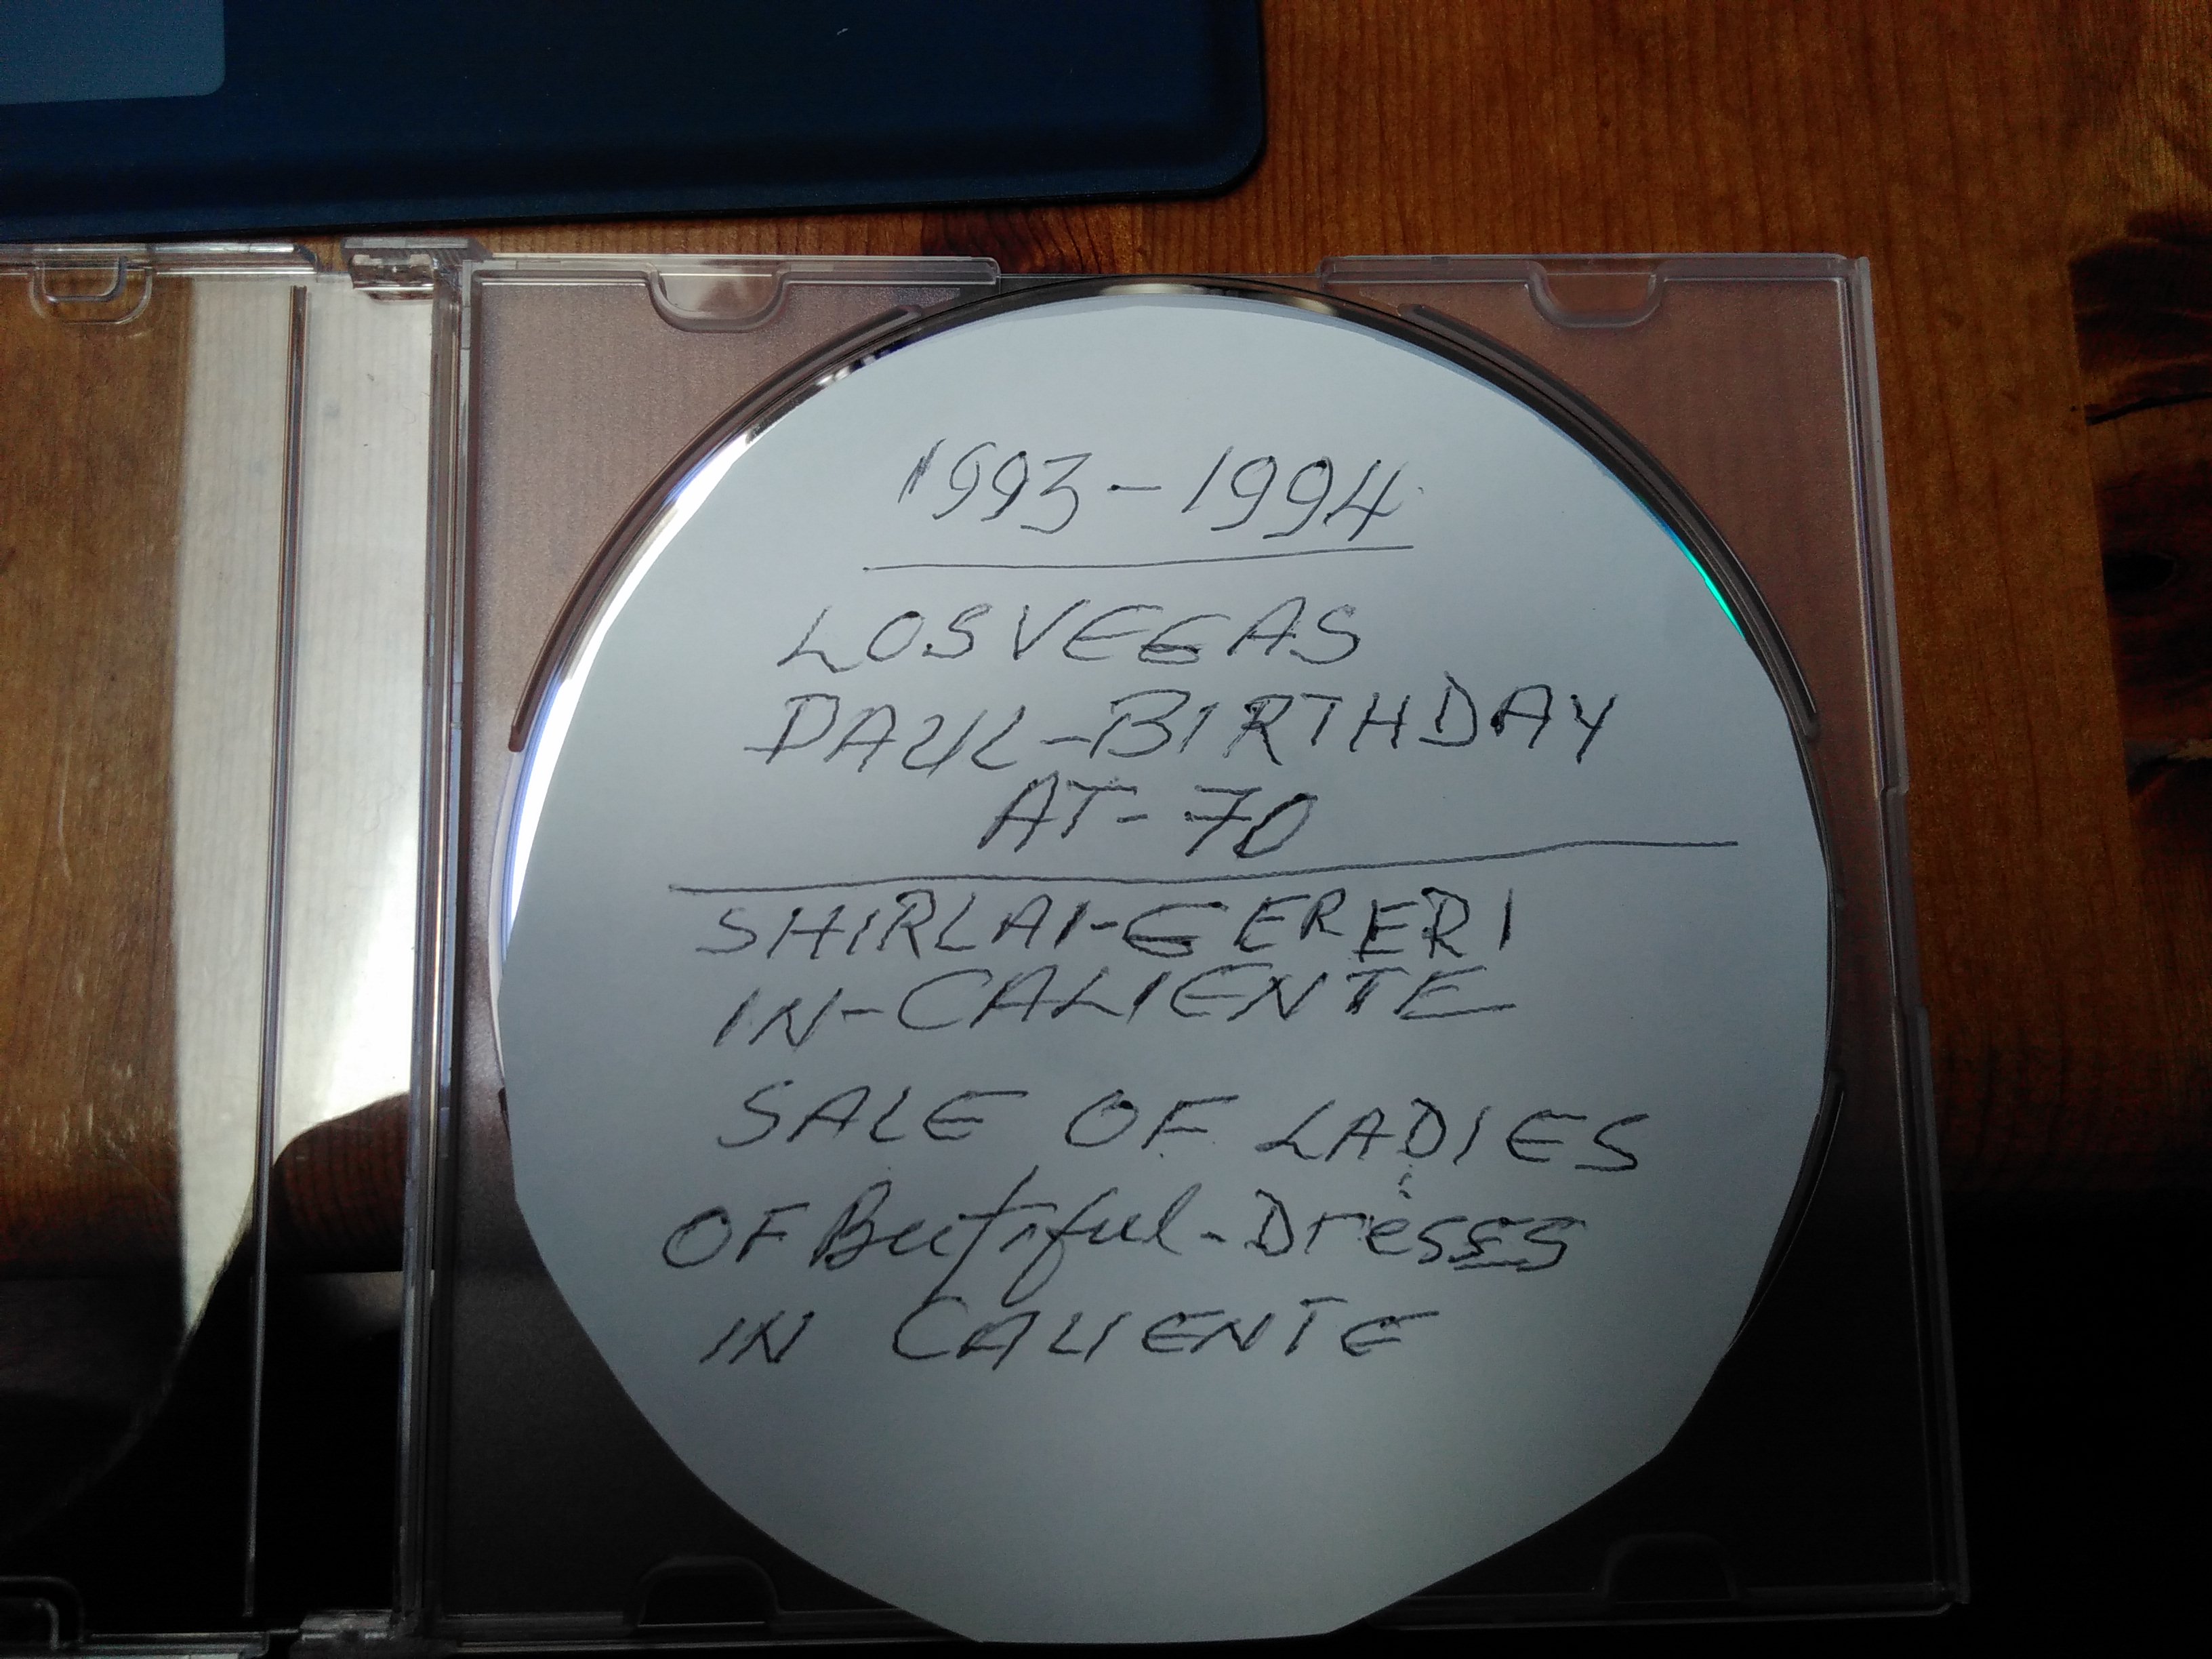 1993-1994
LOSVEGAS
PAUL-BIRTHDAY
AT-70
SHIRLAI-GERERI
IN-CALIENTE
SALE OF LADIES
OF Beutiful-Dresses
IN CALIENTE